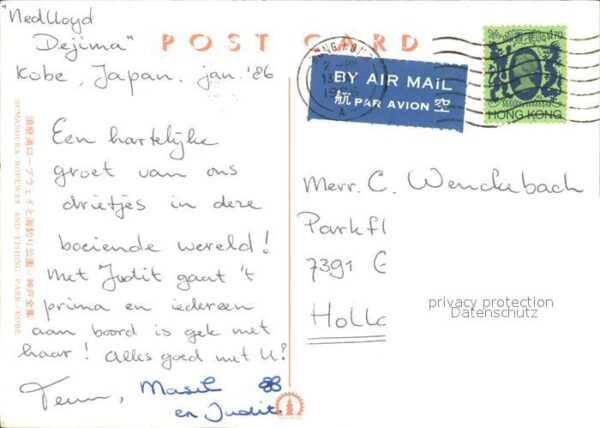 "Nedlloyd
Dejima"
Kobe, Japan. jan. '86
POST CARD
Een hartelijke
groet van ons
drietjes in deze
boeiende wereld!
Met Judit gaat 't
prima en iedereen
aan boord is gek met
haar! Alles goed met U?
en Judit
BY AIR MAIL
航 PAR AVION 空
$1.70
HONG KONG
Mevr. C. Wenckebach
Parkfl
7391 G
Holla
privacy protection
Datenschutz
須磨浦ロープウェイと海釣り公園/神戸全集
SUMANOURA ROPEWAY AND FISHING PARK/KOBE